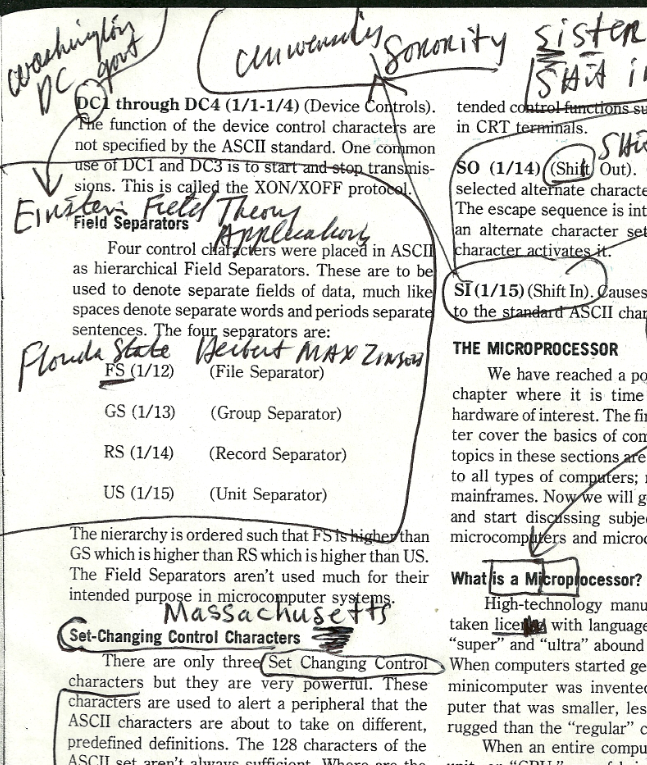 Washington
DC govt
University Sorority
SisTER
SHit in
DC1 through DC4 (1/1-1/4) (Device Controls).
The function of the device control characters are
not specified by the ASCII standard. One common
use of DC1 and DC3 is to start and stop transmis-
sions. This is called the XON/XOFF protocol.
Einstein Field Theory
Applications
Field Separators
Four control characters were placed in ASCII
as hierarchical Field Separators. These are to be
used to denote separate fields of data, much like
spaces denote separate words and periods separate
sentences. The four separators are:
Florida State Herbert MAX
FS (1/12) (File Separator)
GS (1/13) (Group Separator)
RS (1/14) (Record Separator)
US (1/15) (Unit Separator)
The hierarchy is ordered such that FS is higher than
GS which is higher than RS which is higher than US.
The Field Separators aren't used much for their
intended purpose in microcomputer systems.
Massachusetts
Set-Changing Control Characters
There are only three Set Changing Control
characters but they are very powerful. These
characters are used to alert a peripheral that the
ASCII characters are about to take on different,
predefined definitions. The 128 characters of the
ASCII set aren't always sufficient. Where are the
tended control functions su
in CRT terminals.
SO (1/14) (Shift Out).
selected alternate characte
The escape sequence is int
an alternate character set
character activates it.
SI (1/15) (Shift In). Causes
to the standard ASCII char
THE MICROPROCESSOR
We have reached a po
chapter where it is time
hardware of interest. The fir
ter cover the basics of com
topics in these sections are
to all types of computers;
mainframes. Now we will g
and start discussing subje
microcomputers and microc
What is a Microprocessor?
High-technology manu
taken license with language
"super" and "ultra" abound
When computers started ge
minicomputer was invented
puter that was smaller, les
rugged than the "regular" c
When an entire compu